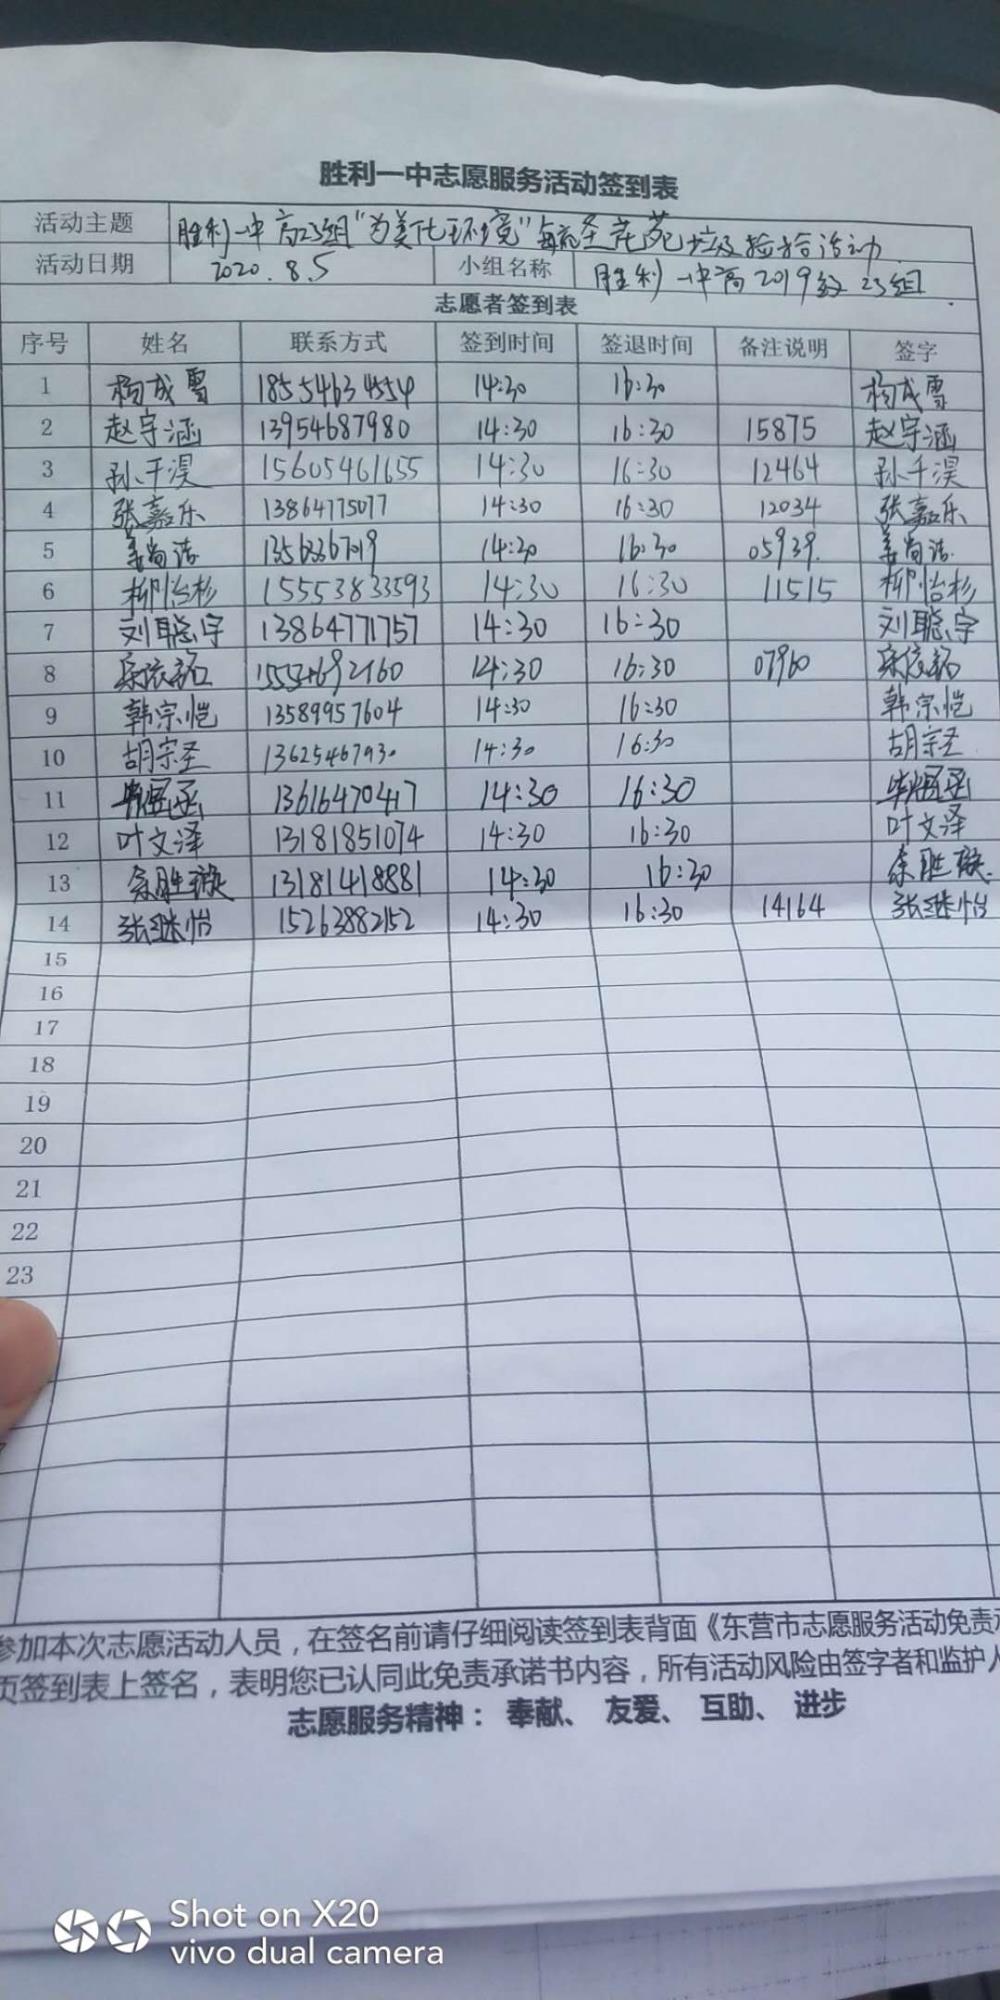 胜利一中志愿服务活动签到表
活动主题 胜利一中高23组"为美化环境" 苑垃圾捡拾活动
活动日期 2020.8.5 小组名称 胜利一中高2019级23组
志愿者签到表
序号 姓名 联系方式 签到时间 签退时间 备注说明 签字
1 杨成雪 18554634554 14:30 16:30 杨成雪
2 赵宇涵 13954687980 14:30 16:30 15875 赵宇涵
3 孙千淏 15605461655 14:30 16:30 12464 孙千淏
4 张嘉乐 13864775077 14:30 16:30 12034 张嘉乐
5 姜尚洁 14:30 16:30 05939. 姜尚洁
6 柳怡杉 15553833593 14:30 16:30 11515 柳怡杉
7 刘聪宇 13864771757 14:30 16:30 刘聪宇
8 14:30 16:30 07960
9 韩宗恺 13589957604 14:30 16:30 韩宗恺
10 胡宗圣 13625467930 14:30 16:30 胡宗圣
11 13616470417 14:30 16:30
12 叶文泽 13181851074 14:30 16:30 叶文泽
13 余胜璇 13181418881 14:30 16:30 余胜璇
14 张继怡 15263882152 14:30 16:30 14164 张继怡
15
16
17
18
19
20
21
22
23
参加本次志愿活动人员，在签名前请仔细阅读签到表背面《东营市志愿服务活动免责承
页签到表上签名，表明您已认同此免责承诺书内容，所有活动风险由签字者和监护人
志愿服务精神： 奉献、 友爱、 互助、 进步
Shot on X20
vivo dual camera